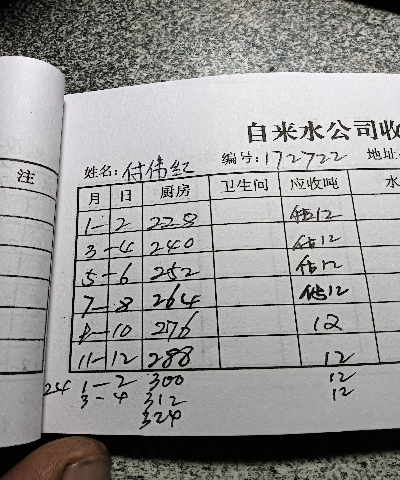 自来水公司收
姓名: 付伟红 编号: 172722 地址
注
月 日 厨房 卫生间 应收吨 水
1-2 228 估12
3-4 240 估12
5-6 252 估12
7-8 264 估12
9-10 276 12
11-12 288 12
24 1-2 300 12
3-4 312 12
324